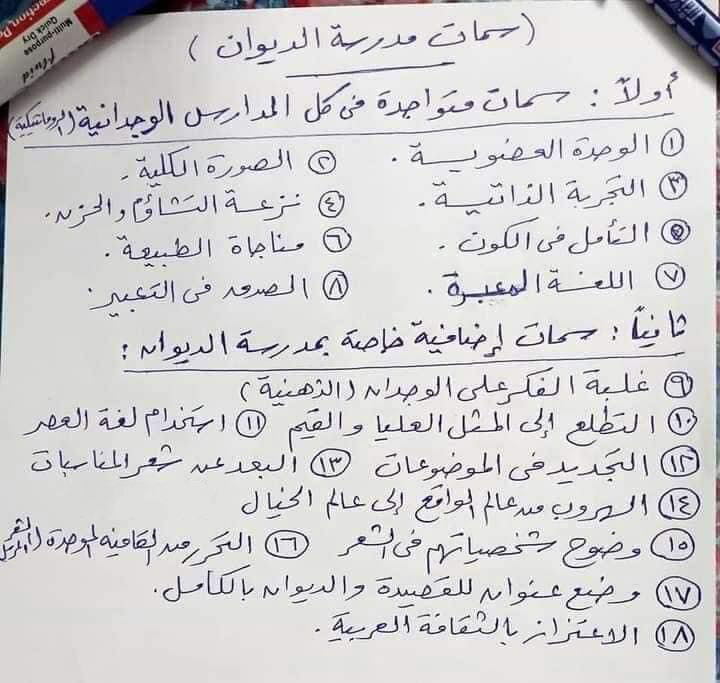 Multi-purpose
Quick Dry
fluid
(سمات مدرسة الديوان)
أولاً: سمات متواجدة في كل المدارس الوجدانية (الرومانتيكية)
① الوحدة العضوية. ② الصورة الكلية.
③ التجربة الذاتية. ④ نزعة التشاؤم والحزن.
⑤ التأمل في الكون. ⑥ مناجاة الطبيعة.
⑦ اللغة المعبرة. ⑧ الصدق في التعبير
ثانياً: سمات إضافية خاصة بمدرسة الديوان:
⑨ غلبة الفكر على الوجدان (الذهنية)
⑩ التطلع إلى المثل العليا والقيم ⑪ استخدام لغة العصر
⑫ التجديد في الموضوعات ⑬ البعد عن شعر المناسبات
⑭ الهروب من عالم الواقع إلى عالم الخيال
⑮ وضوح شخصياتهم في الشعر ⑯ التحرر من القافية الموحدة (الشعر المرسل
⑰ وضع عنوان للقصيدة والديوان بالكامل.
⑱ الاعتزاز بالثقافة العربية.